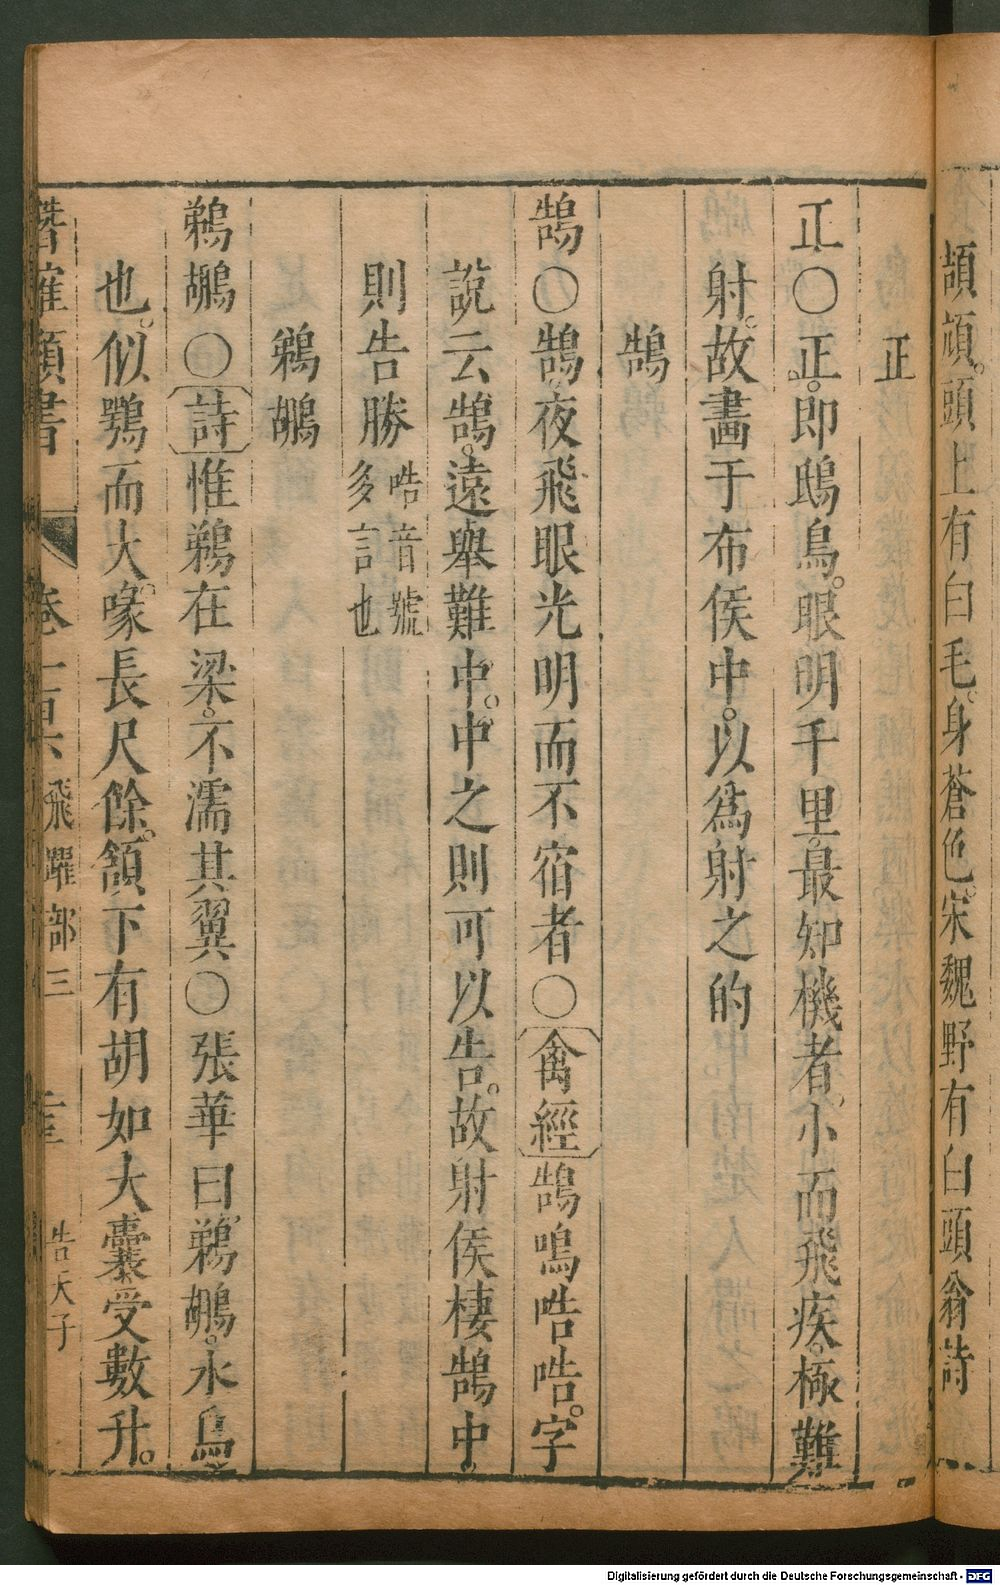 頡頏。頭上有白毛。身蒼色。宋魏野有白頭翁詩
正
正○正。即鴟鳥。眼明千里。最知機者。小而飛疾。極難
射。故畫于布侯中。以為射之的
鵠
鵠○鵠。夜飛眼光明而不宿者○禽經鵠鳴哠哠。字
說云鵠。遠舉難中。中之則可以告。故射侯棲鵠中。
則告勝哠音號多言也
鵜鶘
鵜鶘○詩惟鵜在梁。不濡其翼○張華曰鵜鶘。水鳥
也。似鶚而大。喙長尺餘。頷下有胡如大囊受數升。
潛確類書 卷一百六 飛躍部三 告天子
Digitalisierung gefördert durch die Deutsche Forschungsgemeinschaft - DFG